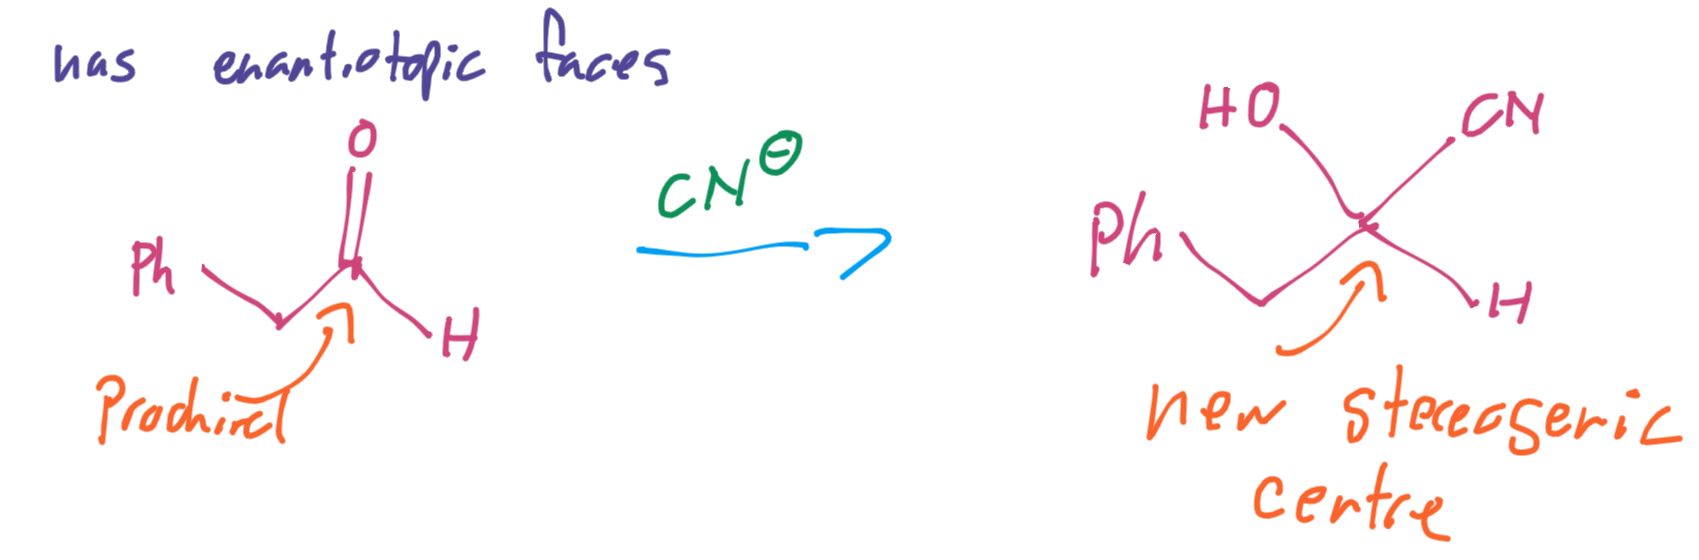 has enantiotopic faces
O
Ph
H
Prochiral
CN⊖
HO
CN
Ph
H
new stereogenic
centre